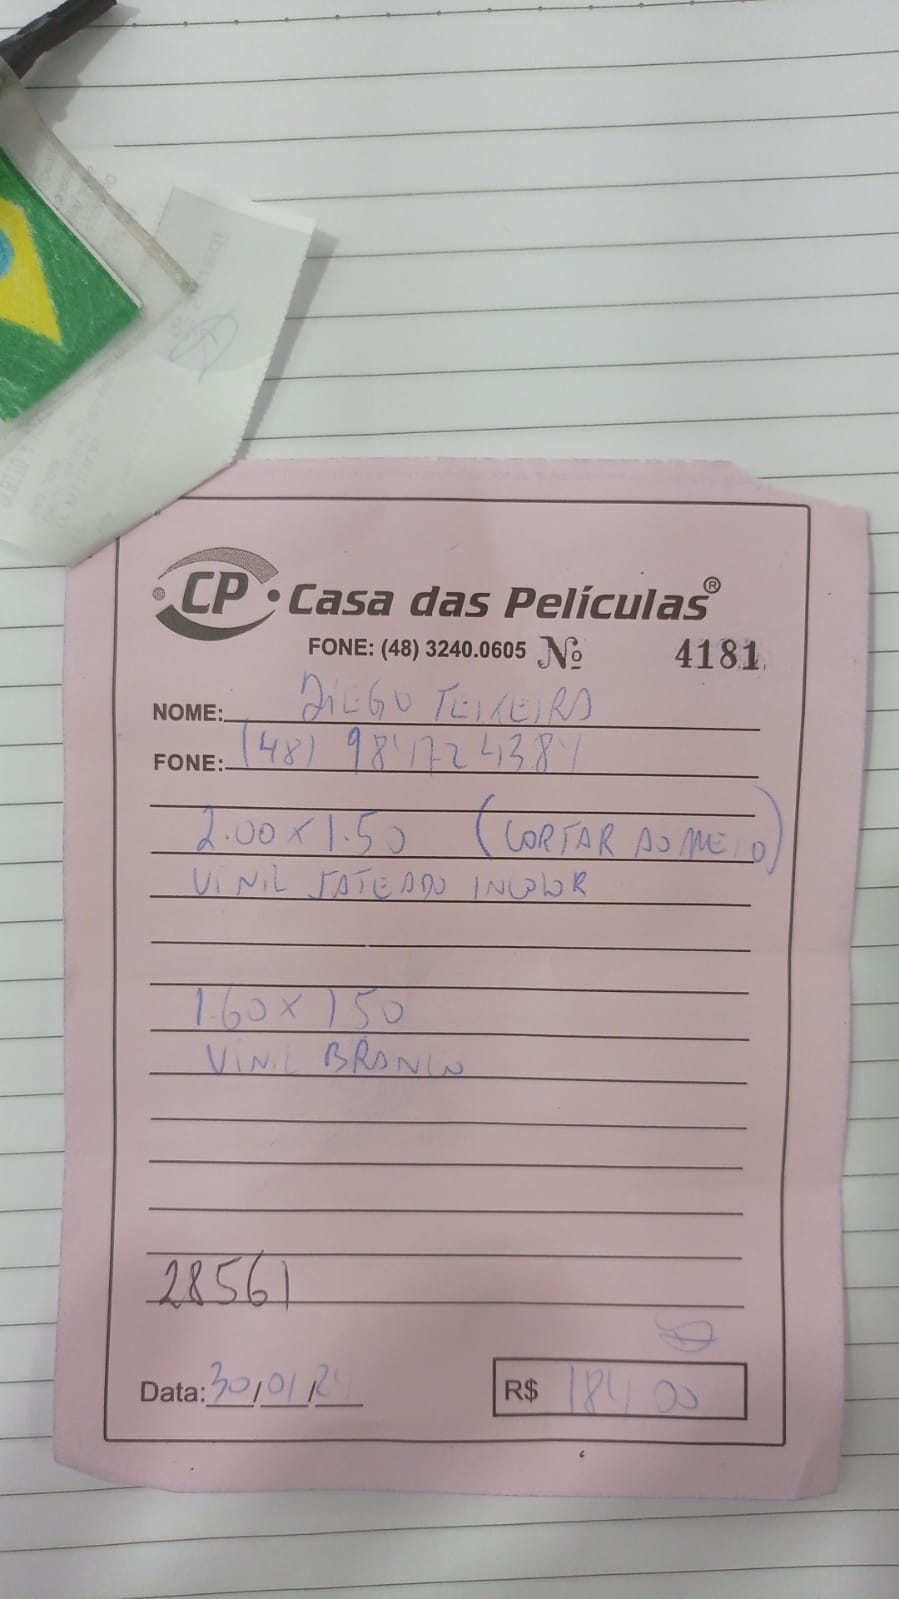 CP Casa das Películas®
FONE: (48) 3240.0605 Nº 4181
NOME: DIEGO TEIXEIRA
FONE: (48) 984724384
2.00 x 1.50 (CORTAR AO MEIO)
VINIL JATEADO INCOLOR
1.60 x 1.50
VINIL BRANCO
28561
Data: 30/01/24 R$ 184,00